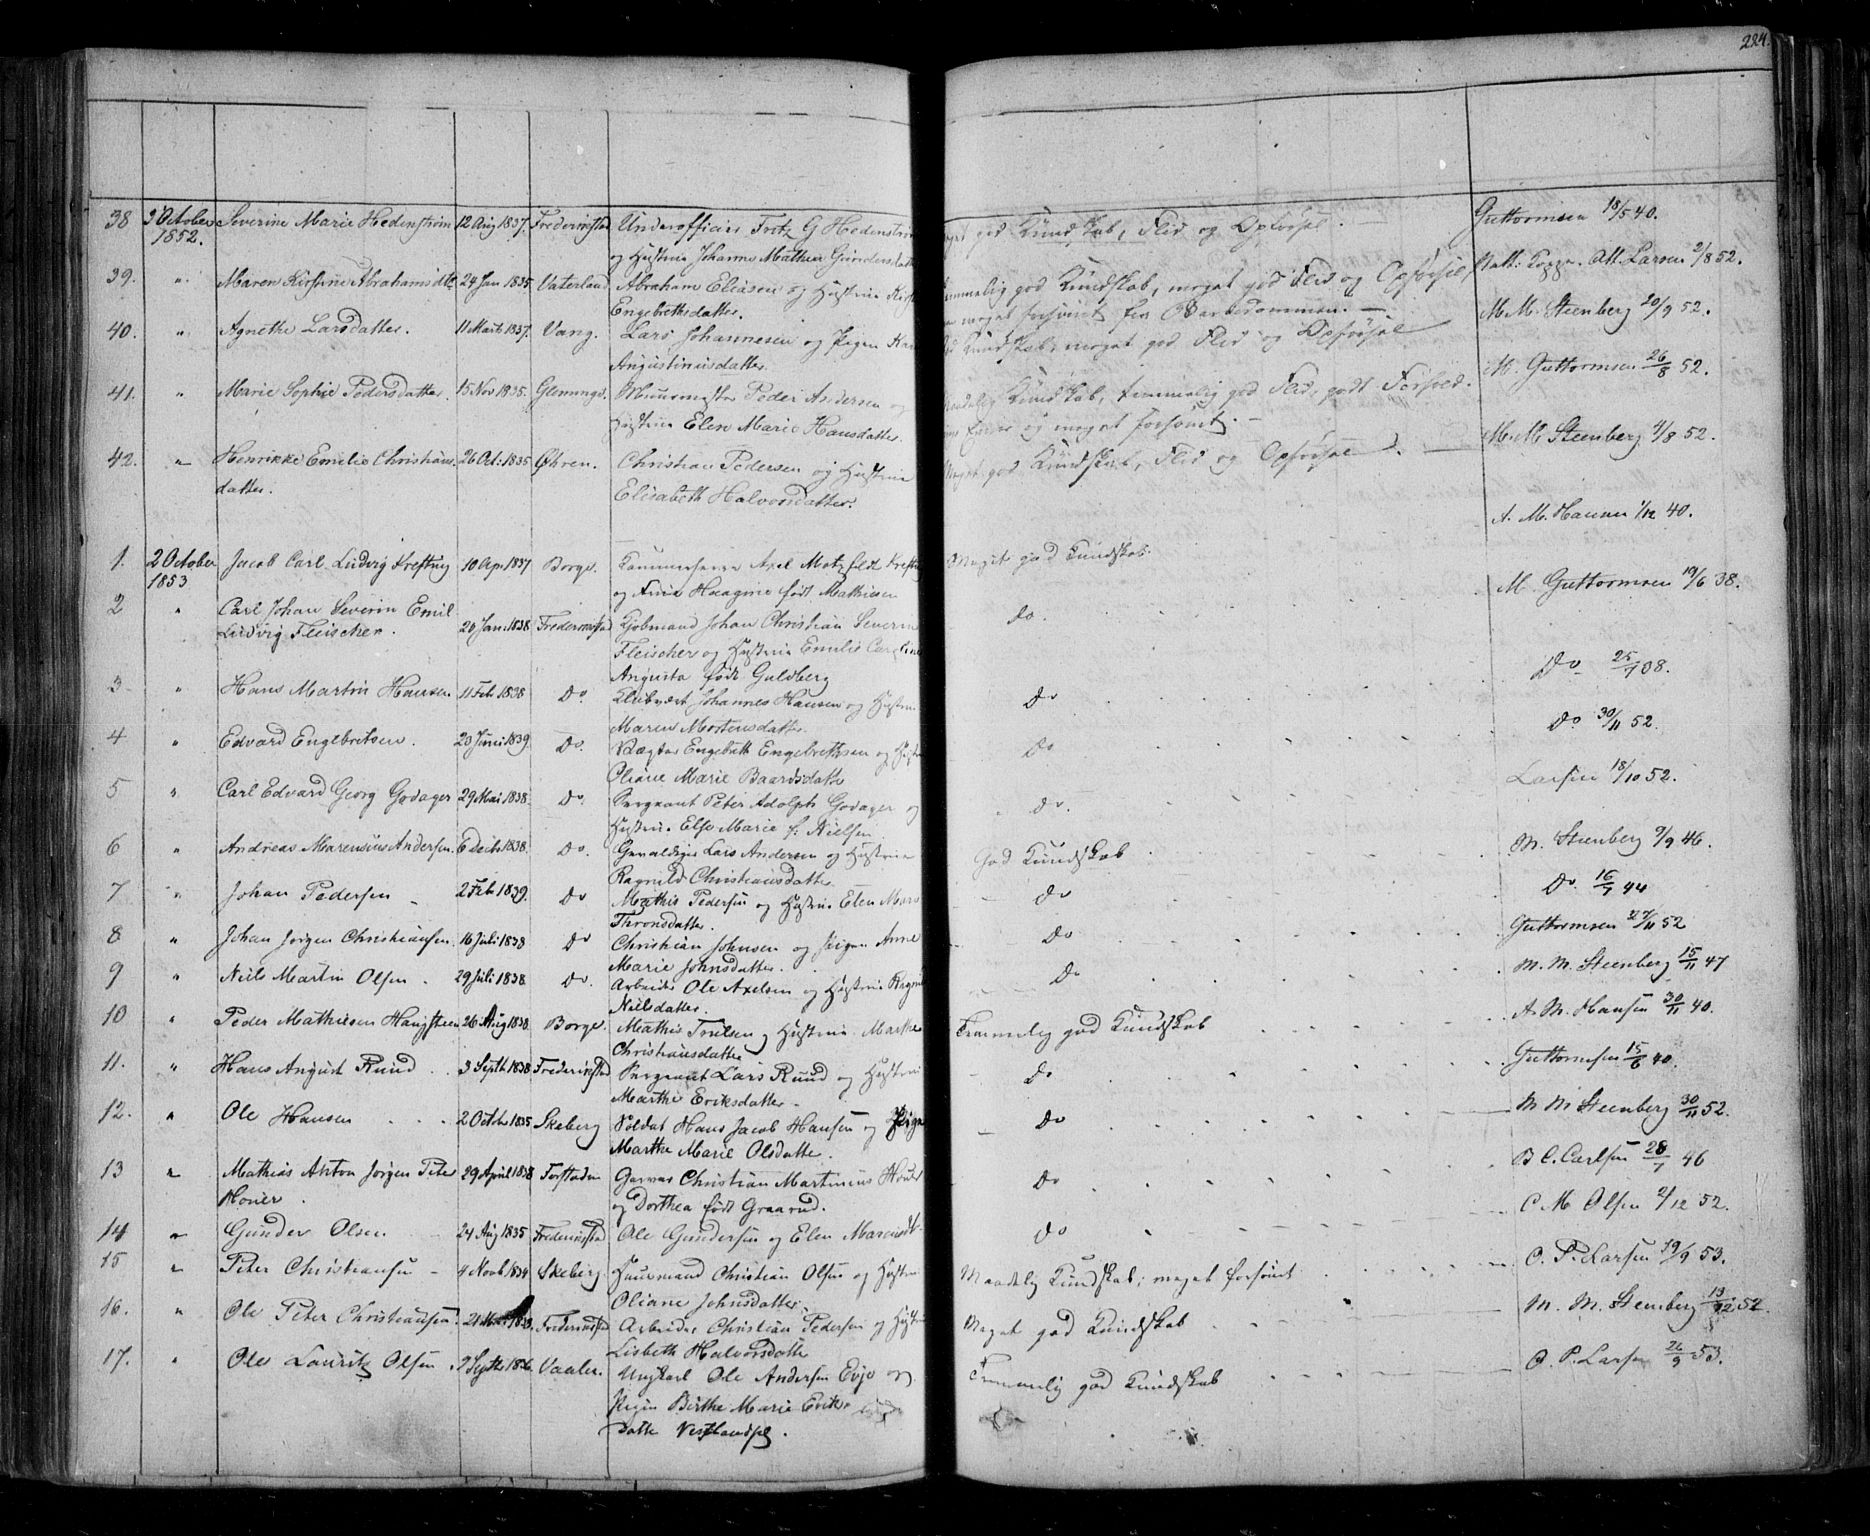 224.
38 3 October Severine Marie Hedenstrøm 12 Aug 1837. Frederikstad Underofficier Fritz G Hedenstrøm Meget god Kundskab, Flid og Opførsel. Guttormsen 18/5 40.
1852. og Hustrue Johanne Mathea Gundersdatter
39. " Maren Kirstine Abrahamsdtr 24 Jan 1835 Vaterland Abraham Eliasen og Hustrue Temmelig god Kundskab, meget god Flid og Opførsel, Att. Larsen 2/8 52.
Engebrethsdatter. meget forsømt fra Barndommen.
40. " Agnethe Larsdatter. 11 Marts 1837. Vang. Lars Johannesen og Pigen Kundskab, meget god Flid og Opførsel M. M. Steenberg 20/9 52.
Augustinusdatter.
41. " Marie Sophie Pedersdatter 15 Nov 1835. Glemmige. Muurmester Peder Andersen og Maadelig Kundskab, temmelig god Flid, godt Forhold. M. Guttormsen 26/8 52.
Hustrue Elen Marie Hansdatter. og meget forsømt.
42. " Henrikke Emilie Christians 26 Oct: 1835 Øhren. Christian Pedersen og Hustrue Meget god Kundskab, Flid og Opførsel M. M. Steenberg 4/8 52.
datter. Elisabeth Halvorsdatter.
A. M. Hansen 1/12 40.
1. 2 October Jacob Carl Ludvig Krefting 10 Apr 1837 Borge. Kammerherre Axel Motzfeldt Krefting Meget god Kundskab.
1853 og Frue født Mathiesen M. Guttormsen 19/6 38.
2 " Carl Johan Severin Emil
Ludvig Fleischer. 20 Jan: 1838 Frederikstad Kjøbmand Johan Christian Severin do.
Fleischer og Hustrue Emilie Caroline
Augusta født Guldberg Do 25/1 38.
3 " Hans Martin Hansen 11 Feb 1838 Do. Johannes Hansen og Hustrue Do
Maren Mortensdatter. Do 30/11 52.
4 " Edvard Engebretsen. 20 Juni 1839. Do. Vægter Engebreth Engebrethsen og Do
Oliane Marie Baardsdatter Larsen 18/10 52.
5 " Carl Edvard Georg Godager 29 Mai 1838 Do. Sergeant Peter Adolph Godager og Do.
Hustrue Else Marie f. Nielsen M. Steenberg 9/9 46.
6 " Andreas Marensius Andersen. 6 Decb 1838. Do. Lars Andersen og Hustrue God Kundskab
Ragnild Christiansdatter Do. 16/7 44
7 " Johan Pedersen 2 Feb 1839. Do Mathis Pedersen og Hustrue Elen Do
Thronsdatter. Guttormsen 27/11 52
8 " Johan Jørgen Christiansen. 16 Juli 1838 Do Christian Johnsen og Pigen Anne Do
Marie Johnsdatter. M. M. Steenberg 15/11 47
9 " Niels Martin Olsen. 29 Juli 1838 Do. Arbeider Ole Axelsen og Hustrue Do
Nielsdatter. A. M. Hansen 30/11 40.
10 " Peder Mathiesen Haugsteen 26 Aug 1838 Borge Mathis og Hustrue Temmelig god Kundskab
Christiansdatter Guttormsen 15/6 40.
11. " Hans August Ruud 3 Septb 1838 Frederikstad Sergeant Lars Ruud og Hustrue Do
Marthe Eriksdatter. M M Steenberg 30/11 52.
12. " Ole Hansen 2 Octb 1835 Skeberg Soldat Hans Jacob Hansen og Pige Do
Marthe Marie Olsdatter. B C. Carlsen 28/7 46
13 " Mathias Anton Jørgen Peter 29 April 1838 Forstaden Garver Christian Martinius Do
og Dorthea født Graarud. C. M. Olsen 2/12 52.
14 " Gunder Olsen 24 Aug 1835 Frederikstad Ole Gundersen og Elen Do
O. P. Larsen 19/9 53.
15 " Peter Christiansen 4 Novb 1834 Skeberg. Huusmand Christian Olsen og Hustrue Maadelig Kundskab; meget forsømt
Oliane Johnsdatter. M. M. Steenberg 13/12 52.
16. " Ole Peter Christiansen Frederikstad Arbeider Christian Pedersen og Meget god Kundskab
Lisbeth Halvorsdatter O. P. Larsen 26/9 53.
17. " Ole Lauritz Olsen Septb Vaaler. Ungkarl Ole Andersen Evje og Temmelig god Kundskab
Pigen Birthe Marie Eriks
datter